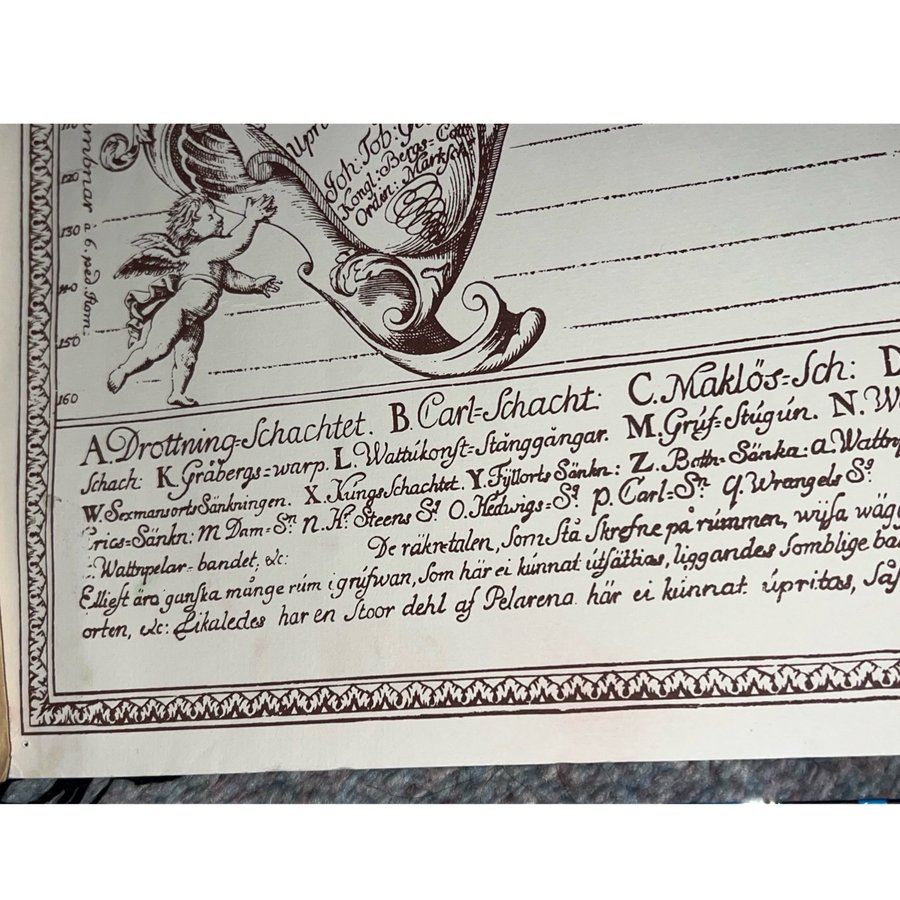 Joh: Tob: Ge
Kongl: Bergs= Coll
Orden: Markſch
110
120
130
140
150
160
mbnar à 6. ped Rom:
A. Drottning=Schachtet. B. Carl=Schacht: C. Maklös=Sch: D
Schach: K. Gråbergs=warp. L. Wattúkonſt=Stånggångar. M. Grúf=Stúgún. N. W
W. Sexmansorts Sänkningen. X. Kungs Schachtet. Y. Fyllorts Sänkn: Z. Bottn=Sänka: a. Wattn
Erics=Sänkn: m. Dam=Sn n. Hr Steens Sg o. Hedwigs=Sg p. Carl=Sn q. Wrangels Sg
Wattnpelar=bandet, &c: De räknetalen, som stå Skrefne på rúmmen, wijſa wäg
Ellieſt ära ganſka många rúm i grúfwan, ſom här ei kúnnat útſättias, liggandes ſomblige ba
orten, &c: Likaledes har en Stoor dehl af Pelarena här ei kúnnat úpritas, ſåſ